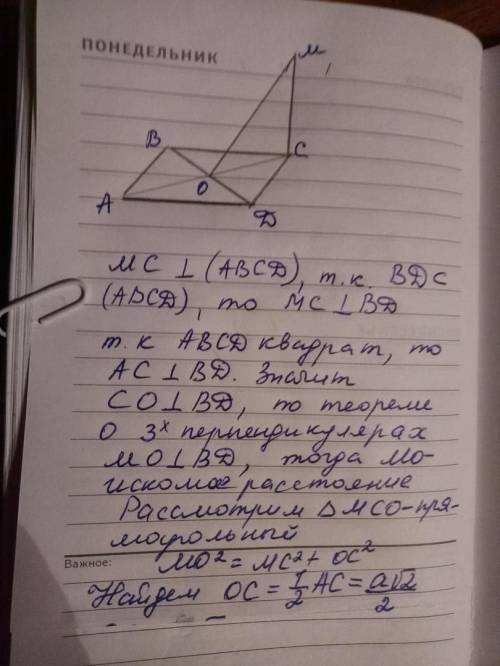 ПОНЕДЕЛЬНИК
M
B
C
O
A
D
MC ⊥ (ABCD), т.к. BD ⊂
(ABCD), то MC ⊥ BD
т.к ABCD квадрат, то
AC ⊥ BD. Значит
CO ⊥ BD, по теореме
О 3х перпендикулярах
MO ⊥ BD, тогда MO-
искомое расстояние
Рассмотрим △MCO-пря-
моугольный
Важное:
MO² = MC² + OC²
Найдем OC = 1/2 AC = a√2/2